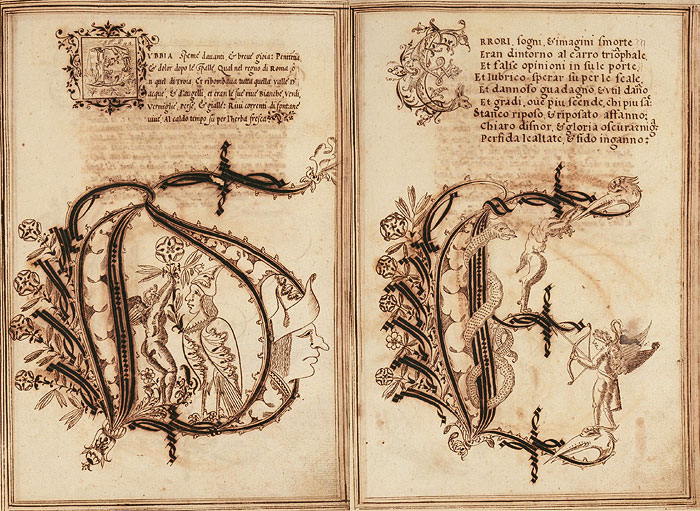 DVBBIA Speme davanti, & breve gioia: Penitẽtia,
& dolor dopo le spalle, Qual nel regno di Roma, ò
n quel di Troia. Et ribombava tutta quella valle D'
acque, & d'augelli, et eran le sue rive Bianche, Verdi,
Vermiglie, perse, & gialle: Rivi correnti di fontane
vive Al caldo tempo su per l'herba fresca
ERRORI, sogni, & imagini smorte
Eran dintorno al carro triõphale,
Et false opinioni in sule porte,
Et lubrico sperar su per le scale,
Et dannoso guadagno, & vtil dãno
Et gradi, oue piu scende, chi piu sa:
Stanco riposo, & riposato affanno:
Chiaro disnor, & gloria oscura,
Perfida lealtate & fido inganno: